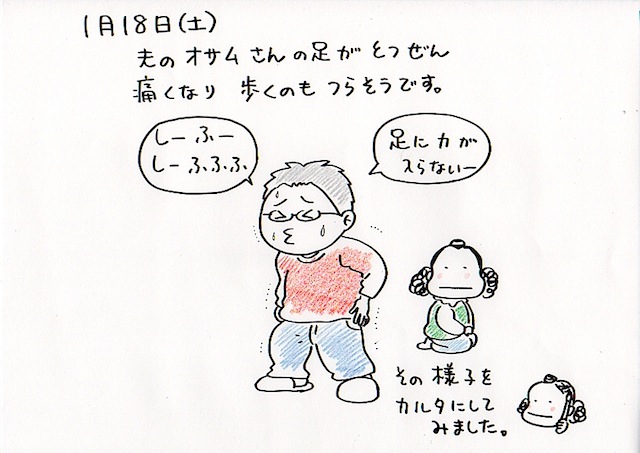 1月18日(土)
夫のオサムさんの足がとつぜん
痛くなり 歩くのもつらそうです。
しーふー
しーふふふ
足に力が
入らないー
その様子を
カルタにして
みました。